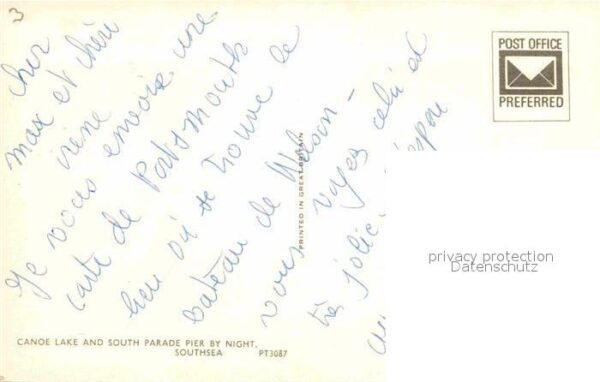 3
cher
max et chéri
irène
Je vous envoie une
carte de Portsmouth
lieu où se trouve le
bateau de Nelson -
vous voyez celui ci
très jolie.
POST OFFICE
PREFERRED
PRINTED IN GREAT BRITAIN
privacy protection
Datenschutz
CANOE LAKE AND SOUTH PARADE PIER BY NIGHT,
SOUTHSEA PT3087